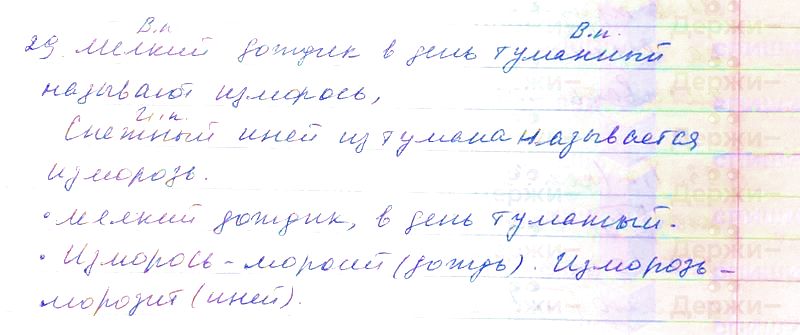 В.п. В.п.
29. Мелкий дождик в день туманный
называют изморось,
И.п.
Снежный иней из тумана называется
изморозь.
• мелкий дождик, в день туманый.
• Изморось - моросит (дождь). Изморозь -
морозит (иней).
Держи-
Держи-
Держи-
Держи-
Держи-
Держи-